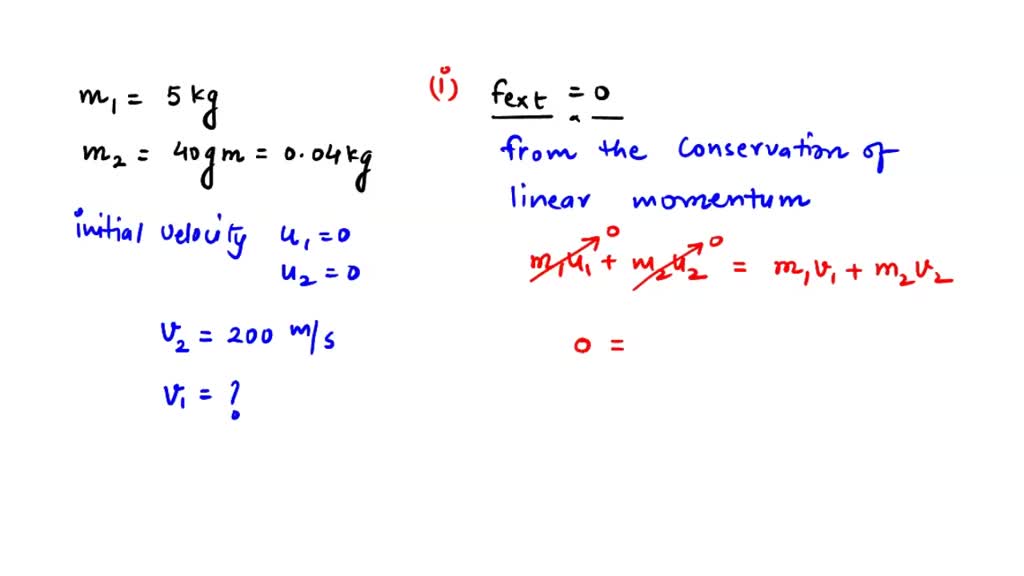 m₁ = 5 kg
m₂ = 40gm = 0.04kg
initial velocity u₁ = 0
u₂ = 0
v₂ = 200 m/s
v₁ = ?
(i) fext = 0
from the conservation of
linear momentum
m₁u₁ 0 + m₂u₂ 0 = m₁v₁ + m₂v₂
0 =